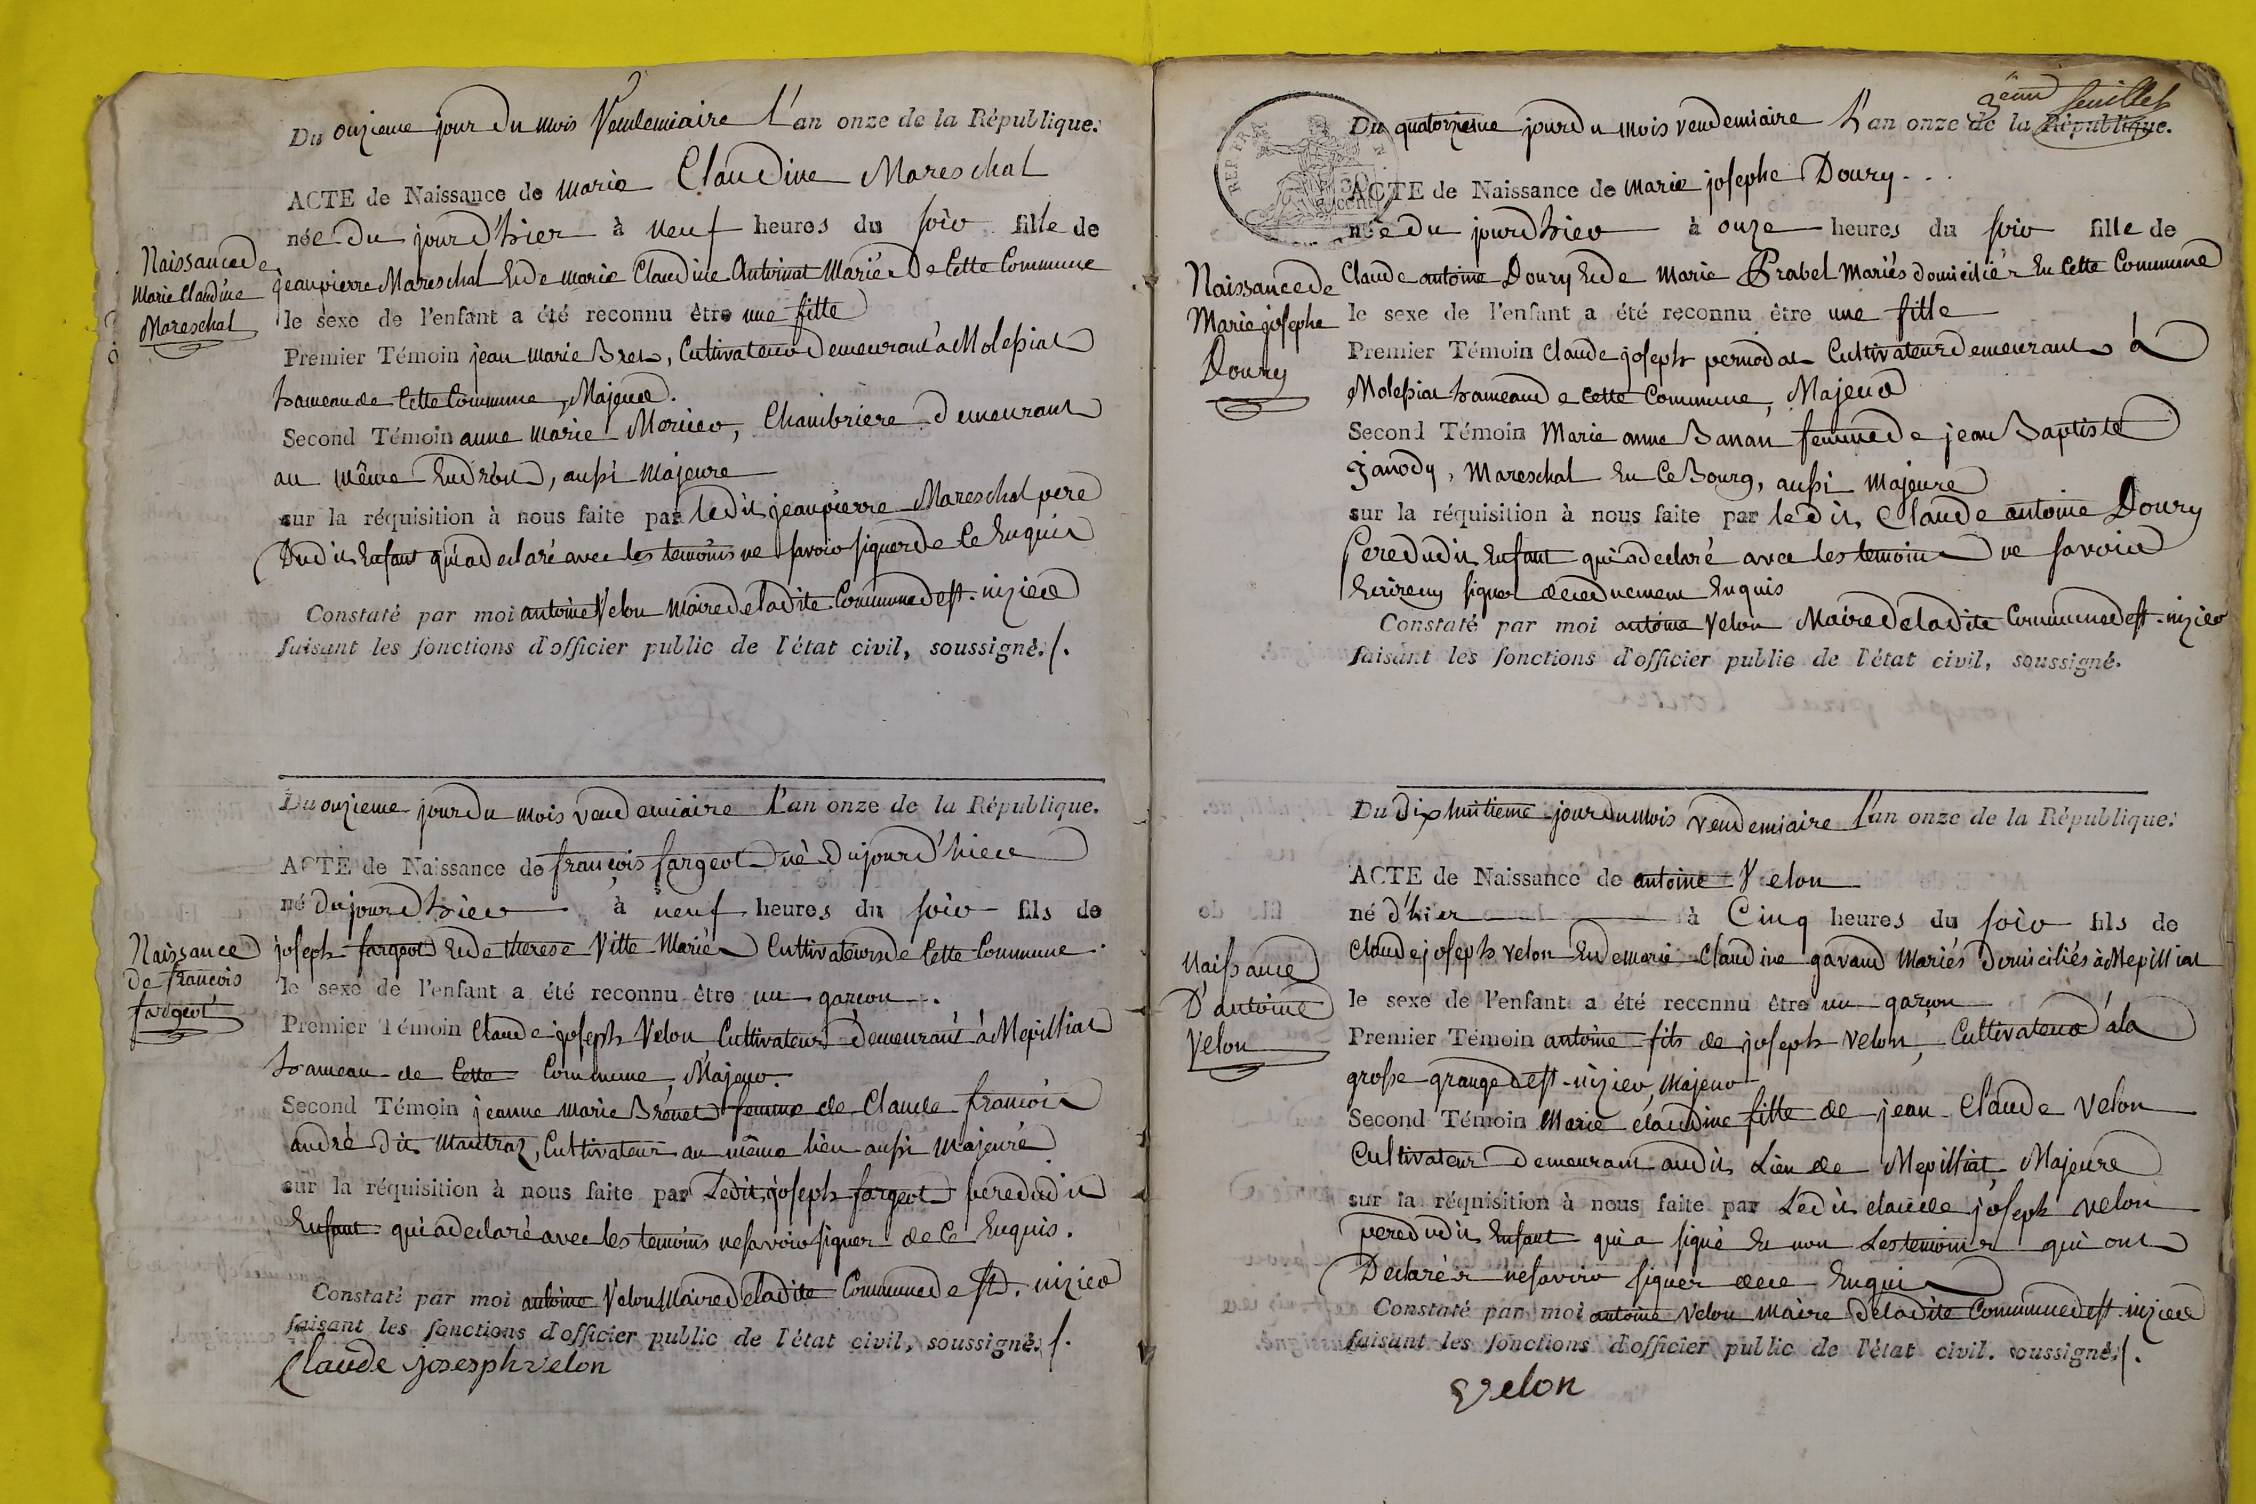 Du onzieme jour du mois Vendemiaire l'an onze de la République.
ACTE de Naissance de marie Claudine Mareschal
née du jour d'hier à neuf heures du soir fille de
Naissance de
Marie Claudine
Mareschal
jeanpierre Mareschal Et de marie Claudine Antoinat Mariés De Cette Commune
le sexe de l'enfant a été reconnu être une fille
Premier Témoin jean marie Bret, Cultivateur Demeurant à Molessiat
hameau de Cette Commune, Majeur.
Second Témoin anne marie Mercier, Chambriere demeurant
au même Endroit, aussi Majeure
sur la réquisition à nous faite par ledit jeanpierre Mareschal pere
Dudit Enfant qui a declaré avec les temoins ne savoir signer de Ce Enquis
Constaté par moi antoine Velon Maire De ladite Commune de st. nizier
faisant les fonctions d'officier public de l'état civil, soussigné./.
Du onzieme jour du mois vendemiaire l'an onze de la République.
ACTE de Naissance de françois fargeot né du jour d'hier
né du jour d'hier à neuf heures du soir fils de
Naissance
De françois
fargeot
joseph fargeot Et de therese Vitte Mariés Cultivateurs de Cette Commune
le sexe de l'enfant a été reconnu être un garcon.
Premier Témoin Claude joseph Velon Cultivateur demeurant à Mepilliat
hameau de Cette Commune, Majeur.
Second Témoin jeanne marie Brevet femme de Claude françois
andré dit Mautraz, Cultivateur au même lieu aussi Majeure
sur la réquisition à nous faite par Ledit joseph fargeot pere dudit
Enfant qui a declaré avec les temoins ne savoir signer de Ce Enquis.
Constaté par moi antoine Velon Maire De ladite Commune de st. nizier
faisant les fonctions d'officier public de l'état civil, soussigné./.
Claude joseph velon
3eme feuillet
Du quatorzieme jour du mois vendemiaire L'an onze de la République.
REP. FRA
ACTE de Naissance de marie josephe Doury...
née du jour d'hier à onze heures du soir fille de
Naissance de
Marie josephe
Doury
Claude antoine Doury Et de Marie Prabel Mariés domiciliés En Cette Commune
le sexe de l'enfant a été reconnu être une fille
Premier Témoin Claude joseph pernodat Cultivateur demeurant à
Molessiat hameau de cette Commune, Majeur
Second Témoin Marie anne Banan femme de jean Baptiste
janody, Mareschal En Ce Bourg, aussi majeure
sur la réquisition à nous faite par ledit Claude antoine Doury
Pere dudit Enfant qui a declaré avec les temoins ne savoir
Ecrire ny signer de ce duement Enquis
Constaté par moi antoine Velon Maire De ladite Commune de st. nizier
faisant les fonctions d'officier public de l'état civil, soussigné.
Du dix huitieme jour du mois vendemiaire l'an onze de la République.
ACTE de Naissance de antoine Velon
né d'hier à Cinq heures du soir fils de
Naissance
D'antoine
Velon
Claude joseph velon Et de marie Claudine gavand Mariés Domiciliés à Mepilliat
le sexe de l'enfant a été reconnu être un garçon
Premier Témoin antoine fils de joseph Velon, Cultivateur à la
grosse grange de st. nizier, Majeur
Second Témoin Marie claudine fille de jean Claude Velon
Cultivateur Demeurant audit Lieu de Mepilliat Majeure
sur la réquisition à nous faite par Ledit claude joseph velon
pere dudit Enfant qui a signé Et non Les temoins qui ont
Declarés ne savoir signer de ce Enquis
Constaté par moi antoine Velon Maire De ladite Commune de st. nizier
faisant les fonctions d'officier public de l'état civil. soussigné./.
velon